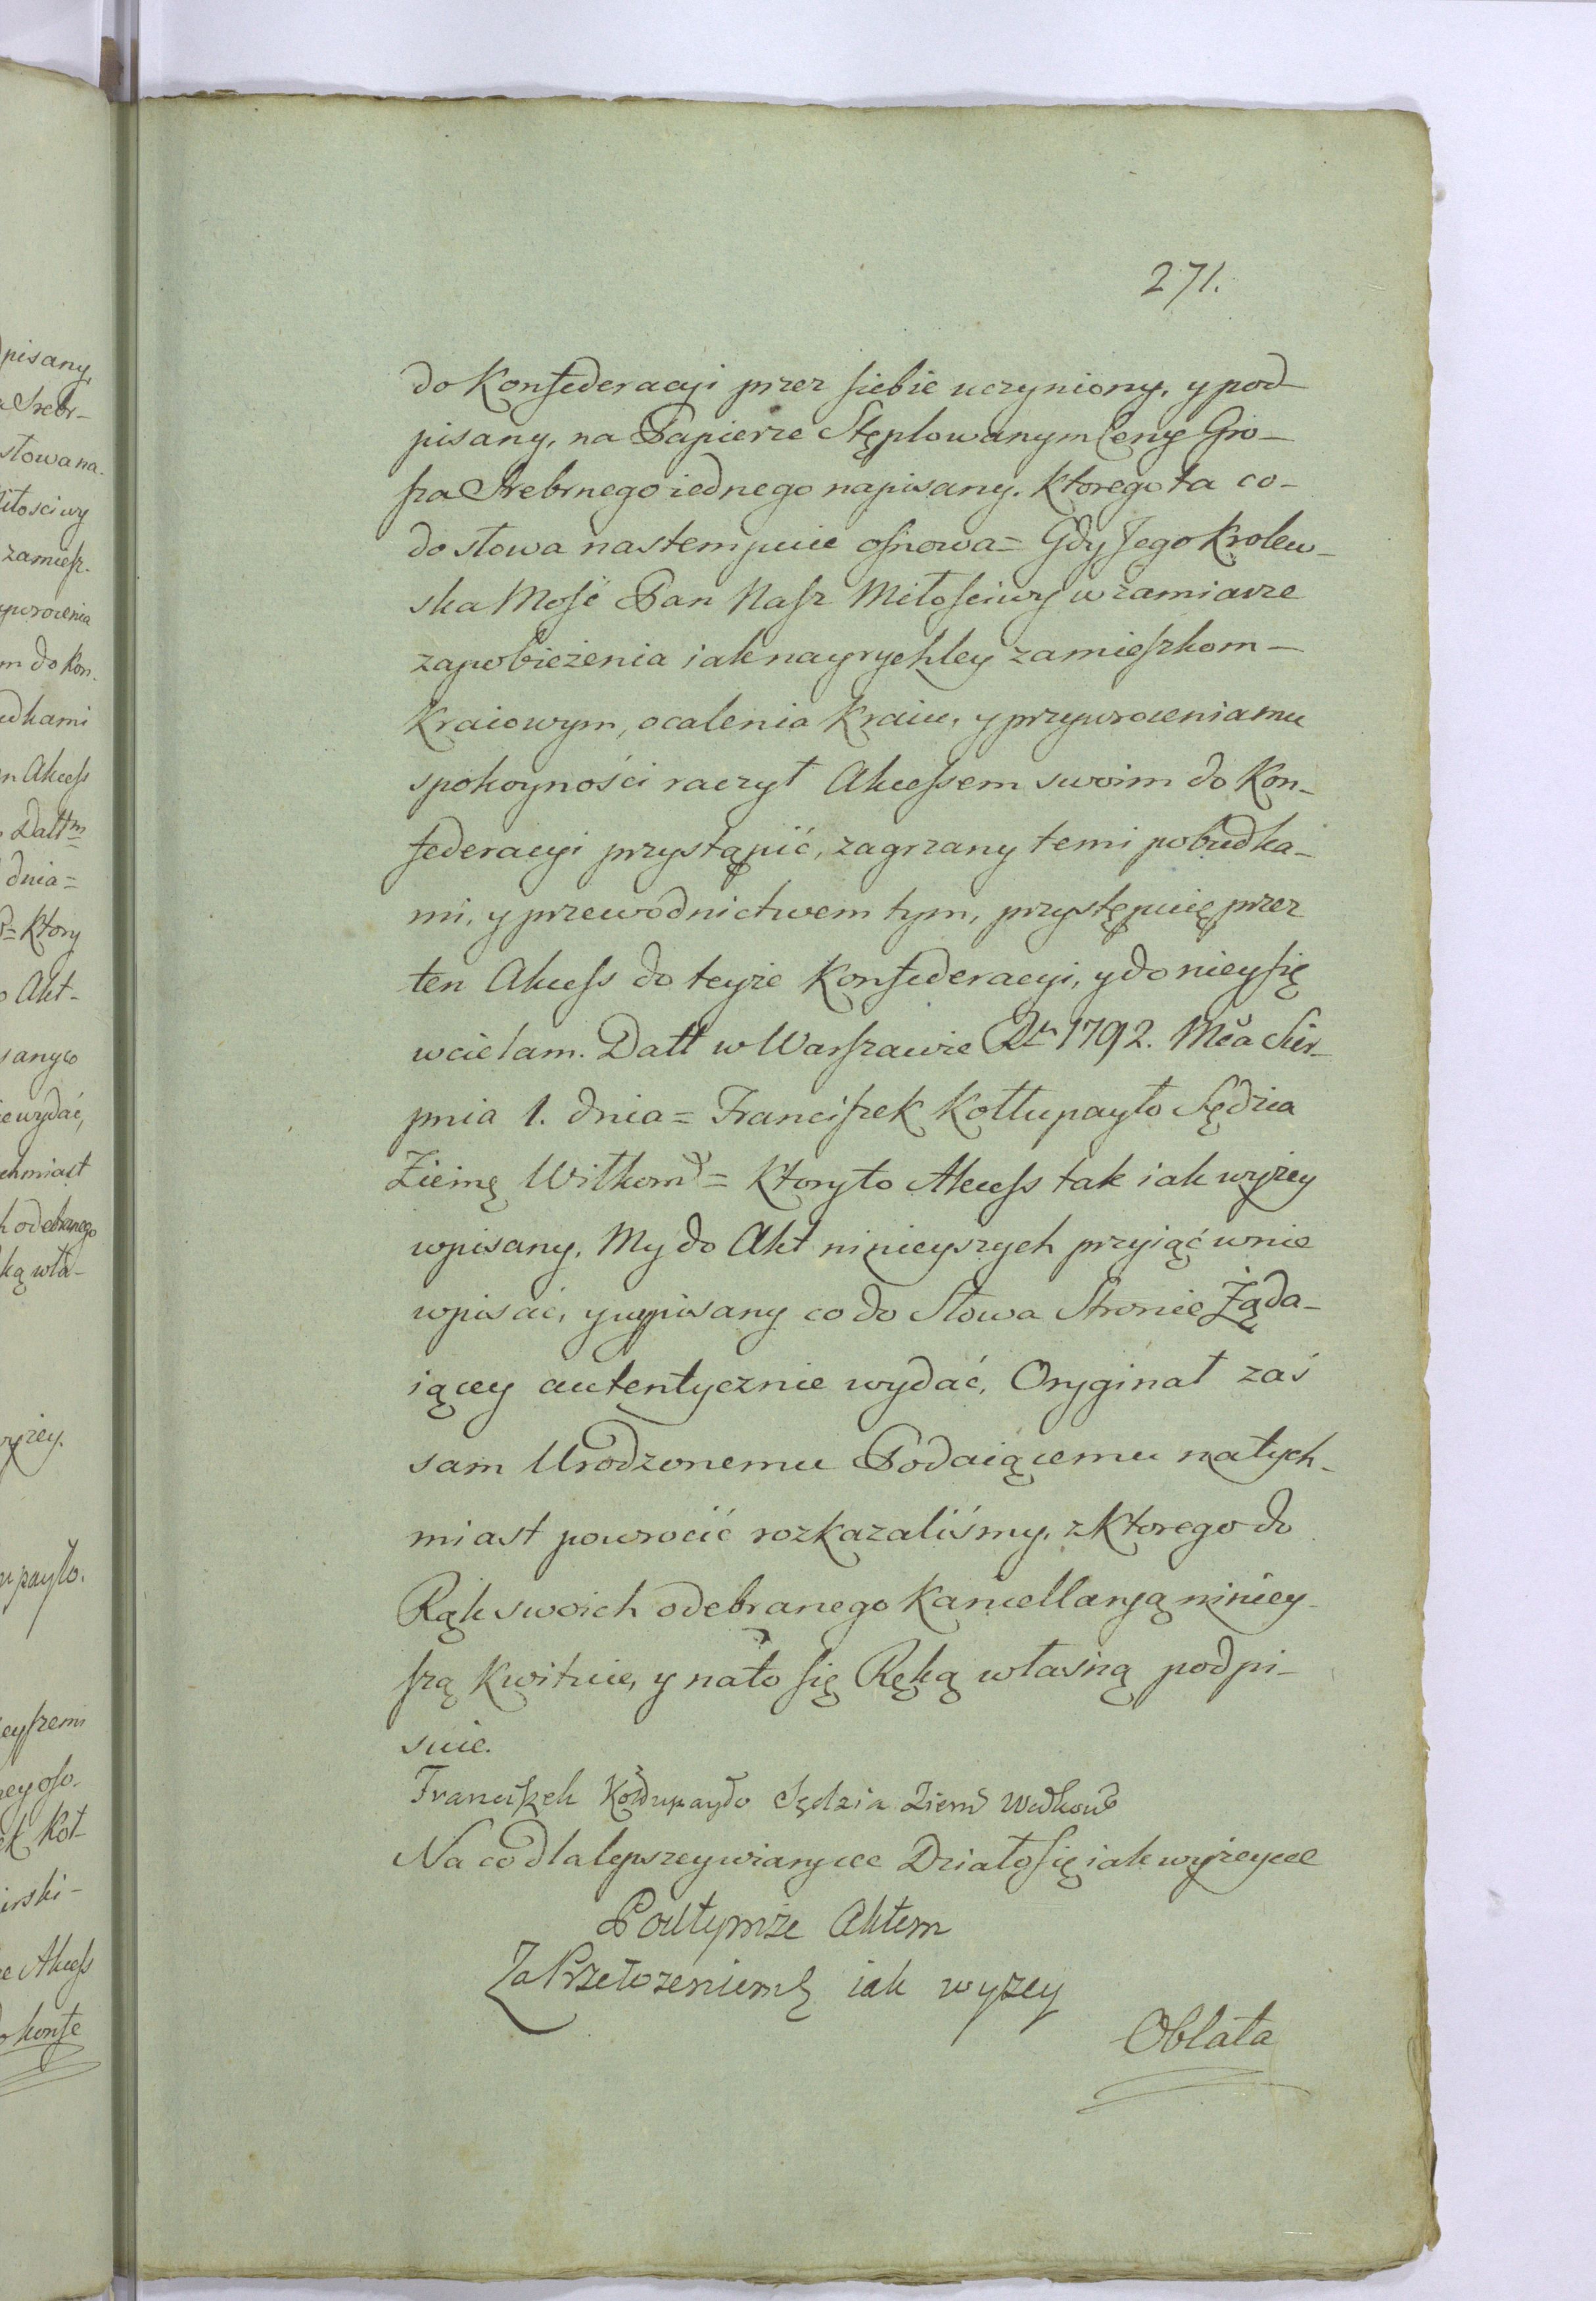 271.
do Konfederacyi przez siebie uczyniony, y pod-
pisany, na Papierze Stęplowanym Ceny Gro-
sza Srebrnego iednego napisany. Ktorego ta co-
do słowa nastempuie osnowa = Gdy Jego Krolew-
ska Mość Pan Nasz Miłościwy w zamiarze
zapobieżenia iak nayrychley zamieszkom-
Kraiowym, ocalenia Kraiu, y przywroceniamu
spokoyności raczył Akcessem swoim do Kon-
federacyi przystąpić, zagrzany temi pobudka-
mi, y przewodnictwem tym, przystępuię przez
ten Akcess do teyże Konfederacyi, y do niey się
wcielam. Datt w Warszawie Rku 1792. Mca Sier-
pnia 1. dnia = Franciszek Kołłupayło Sędzia
Ziemę Wiłkom = Ktory to Akcess tak iak wyżey
wpisany, My do Akt ninieyszych przyiąć wnie
wpisać, y wypisany co do Słowa Stronie Żąda-
iącey autentycznie wydać, Oryginał zaś
sam Urodzonemu Podaiącemu natych-
miast powrocić rozkazaliśmy, z Ktorego do
Rąk swoich odebranego Kancellaryą niniey-
szą Kwituie, y na to się Ręką własną podpi-
suie.
Franciszek Kołłupayło Sędzia Ziem Wiłkom
Na co dla lepszey wiary ucc Działo się iak wyżey ucc
Pod tymże Aktem
Za Przełożeniem iak wyzey
Oblata
pisany,
a Srebr-
słowa na-
Miłosciwy
zamiesz-
przywrocenia
m do Kon-
udkami
n Akcess
Datt m
dnia =
= Ktory
o Akt-
ie wydać,
chmiast
k odebranego
ką wła-
wyżey.
upayło.
eyszem
ey oso-
ek Koł-
irski-
e Akcess
o konfe